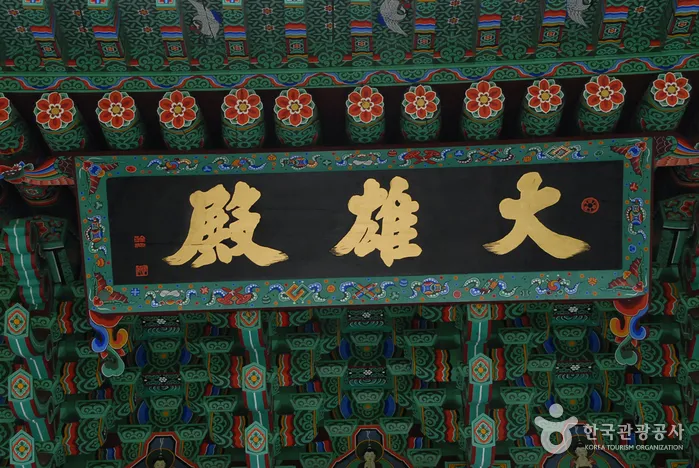 大雄殿
한국관광공사
KOREA TOURISM ORGANIZATION